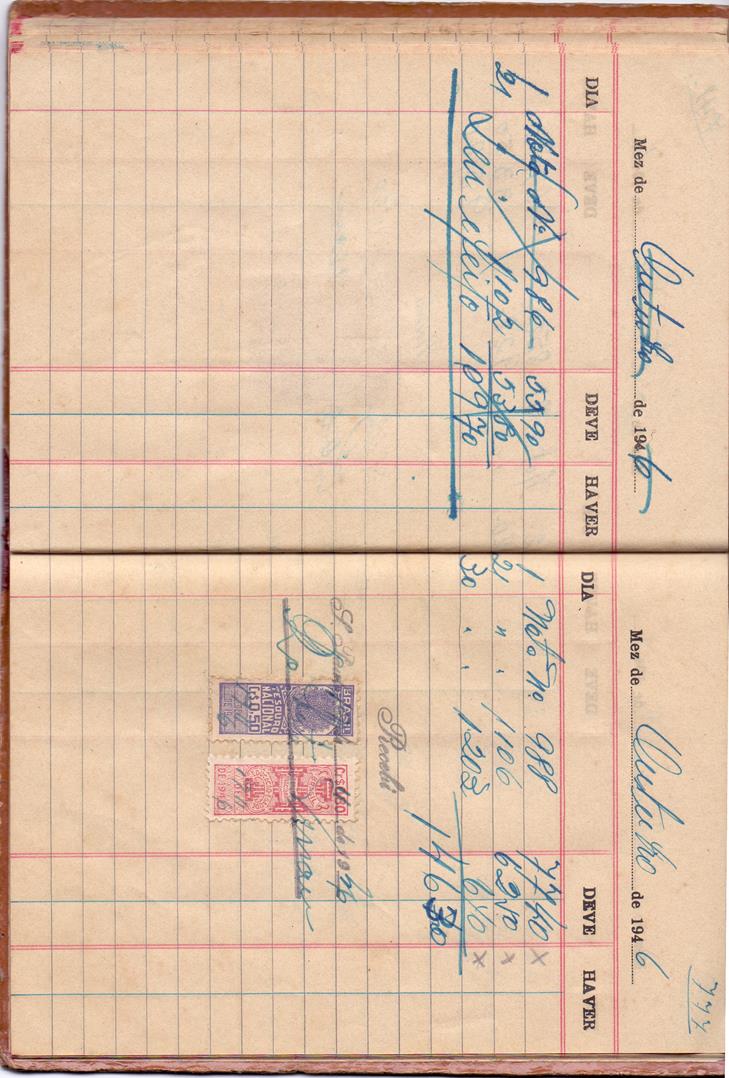 Mez de Outubro de 1946
DIA DEVE HAVER
1 Nota Nº 986 55 90
21 " 1102 53 80
Sem efeito 109 70
777
Mez de Outubro de 1946
DIA DEVE HAVER
1 Nota no. 988 77 40
21 " " 1106 62 80
30 " " 1203 6 10
146 30
Recebi
S. de 1946
BRASIL
TESOURO
NACIONAL
CR$0,50
DE 1946